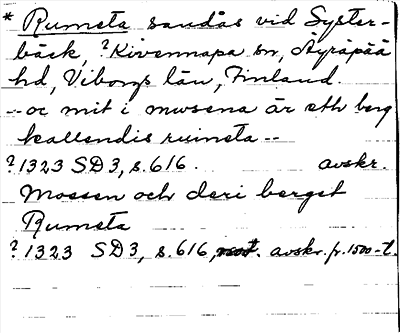 * Rumsta sandås vid Syster-
bäck, ? Kivennapa sn, Äyräpää
hd, Viborgs län, Finland.
-- oc mit i mwsena är eth berg
kallendis rumsta --
? 1323 SD 3, s. 616. avskr.
Mossen och deri berget
Rumsta
? 1323 SD 3, s. 616, avskr. fr. 1500-t.